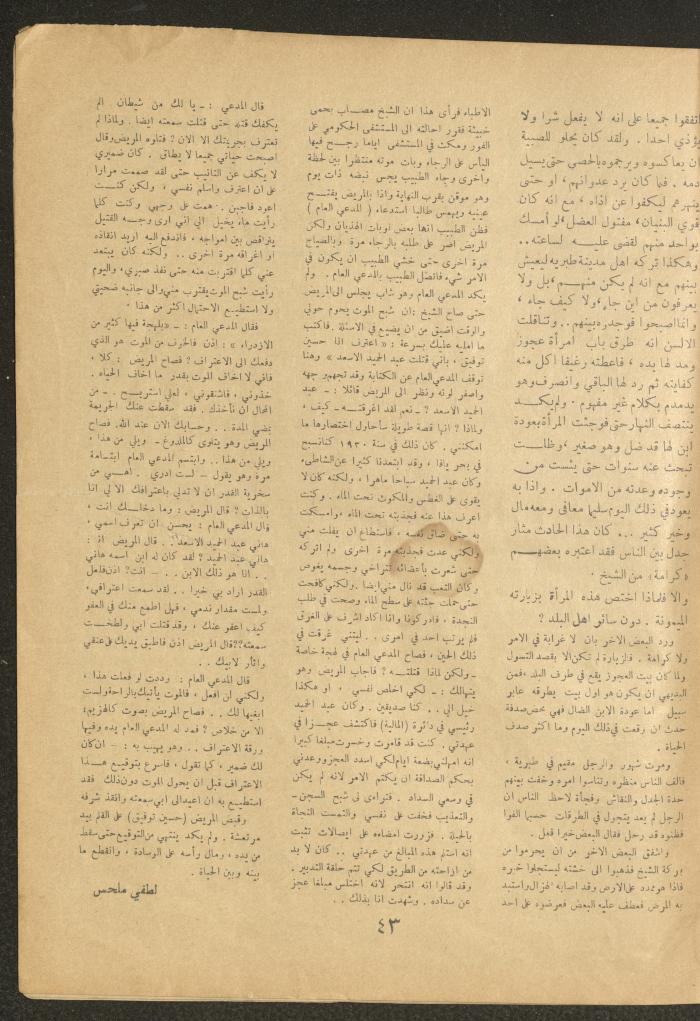 اتفقوا جميعا على انه لا يفعل شرا ولا
يؤذي احدا . ولقد كان يحلو للصبية
ان يعاكسوه ويرجموه بالحصى حتى يسيل
دمه . فما كان يرد عدوانهم ، او حتى
ينهرهم ليكفوا عن اذاه ، مع انه كان
قوي البنيان، مفتول العضل، لو أمسك
بواحد منهم لقضى عليه لساعته ..
وهكذا تركه اهل مدينة طبريه ليعيش
بينهم مع انه لم يكن منهم ، بل ولا
يعرفون من اين جاء، ولا كيف جاء ،
وانما اصبحوا فوجدوه بينهم .. وتناقلت
الالسن انه طرق باب امرأة عجوز
ومد لها يده ، فاعطته رغيفا اكل منه
كفايته ثم رد لها الباقي وانصرف وهو
يدمدم بكلام غير مفهوم . ولم يكد
ينتصف النهار حتى فوجئت المرأة بعودة
ابن لها قد ضل وهو صغير ، وظلت
تبحث عنه سنوات حتى يئست من
وجوده وعدته من الاموات . واذا به
يعود في ذلك اليوم سليما معافى ومعه مال
وخير كثير ... كان هذا الحادث مثار
جدل بين الناس فقد اعتبره بعضهم
« كرامة » من الشيخ .
والا فلماذا اختص هذه المرأة بزيارته
الميمونة . دون سائر اهل البلد ?
ورد البعض الاخر بان لا غرابة في الامر
ولا كرامة . فالزيارة لم تكن الا بقصد التسول
ولما كان بيت العجوز يقع في طرف البلد ، فمن
البديهي ان يكون هو اول بيت يطرقه عابر
سبيل . اما عودة الابن الضال فهي محض صدفة
حدث ان رقعت في ذلك اليوم وما اكثر صدف
الحياة .
ومرت شهور والرجل مقيم في طبرية ،
فالف الناس منظره وتناسوا امره وخفت بينهم
حدة الجدل والنقاش . وفجأة لاحظ الناس ان
الرجل لم يعد يتجول في الطرقات حسبما الفوا
فظنوه قد رحل فقال البعض خيرا فعل .
واشفق البعض الاخر من ان يحرموا من
بركة الشيخ فذهبوا الى خشته ليستجلوا خبره
فاذا هو ممدد على الارض وقد اصابه الهزال واستبد
به المرض فعطف عليه البعض فعرضوه على احد
الاطباء فرأى هذا ان الشيخ مصاب بحمى
خبيثة فقرر احالته الى المستشفى الحكومي على
الفور ومكث في المستشفى اياما رجح فيها
اليأس على الرجاء وبات موته منتظرا بين لحظة
واخرى وجاء الطبيب يجس نبضه ذات يوم
وهو موقن بقرب النهاية واذا بالمريض يفتح
عينيه ويهمس طالبا استدعاء ( المدعي العام )
فظن الطبيب انها بعض نوبات الهذيان ولكن
المريض اصر على طلبه بالرجاء مرة وبالصياح
مرة اخرى حتى خشي الطبيب ان يكون في
الامر شيء فاتصل الطبيب بالمدعي العام . ولم
يكد المدعي العام وهو شاب يجلس الى المريض
حتى صاح الشيخ : ان شبح الموت يحوم حولي
والوقت اضيق من ان يضيع في الاسئلة . فاكتب
ما امليه عليك بسرعة : « اعترف انا حسين
توفيق ، باني قتلت عبد الحميد الاسعد » وهنا
توقف المدعي العام عن الكتابة وقد تجهم وجهه
واصفر لونه ونظر الى المريض قائلا : - عبد
الحميد الاسعد ? - نعم لقد اغرقته - كيف ،
ولماذا ? انها قصة طويلة سأحاول اختصارها ما
امكنني . كان ذلك في سنة ١٩٣٠ كنا نسبح
في بحر يافا ، وقد ابتعدنا كثيرا عن الشاطىء
وكان عبد الحميد سباحا ماهرا ، ولكنه كان لا
يقوى على الغطس والمكوث تحت الماء . وكنت
اعرف هذا عنه فجذبته تحت الماء ، وامسكت
به حتى ضاق نفسه ، فاستطاع ان يفلت مني
ولكني عدت فجذبته مرة اخرى ولم اتركه
حتى شعرت بأعضائه تتراخى وجسمه يغوص
وكان التعب قد نال مني ايضا . ولكني كافحت
حتى حملت جثته على سطح الماء وصحت في طلب
النجدة ، فادركونا وانا اكاد اشرف على الغرق
فلم يرتب احد في امرى .. ليتني غرقت في
ذلك الحين ، فصاح المدعي العام في لهجة خاصة
- ولكن لماذا قتلته ? فاجاب المريض وهو
يتهالك : - لكي اخلص نفسي ، او هكذا
خيل الي .. كنا صديقين . وكان عبد الحميد
رئيسي في دائرة (المالية) فاكتشف عجزا في
عهدتي . كنت قد قامرت وخسرت مبلغا كبيرا
انه امهلني بضعة ايام لكي اسدد العجز ووعدني
بحكم الصداقة ان يكتم الامر لانه لم يكن
في وسعي السداد . فتراءى لى شبح السجن -
والتعذيب فخفت على نفسي والتمست النجاة
بالحيلة . فزورت امضاءه على ايصالات تثبت
انه استلم هذه المبالغ من عهدتي .. كان لا بد
من ازاحته من الطريق لكي تتم حلقة التدبير .
وقد قالوا انه انتحر لانه اختلس مبلغا عجز
عن سداده . وشهدت انا بذلك ..
قال المدعي : - يا لك من شيطان الم
يكفك قتله حتى قتلت سمعته ايضا . ولماذا لم
تعترف بجريمتك الا الان ? فتأوه المريض وقال
اصبحت حياتي جحيما لا يطاق . كان ضميري
لا يكف عن التأنيب حتى لقد صممت مرارا
على ان اعترف واسلم نفسي ، ولكن كنت
اعود فاجبن . همت على وجهي وكنت كلما
رأيت ماء يخيل الي اني ارى وجه القتيل
يتراقص بين امواجه ، فاندفع اليه اريد انقاذه
او اغراقه مرة اخرى .. ولكنه كان يبتعد
عني كلما اقتربت منه حتى نفذ صبري، واليوم
رأيت شبح الموت يقترب مني والى جانبه ضحيتي
ولا استطيع الاحتمال اكثر من هذا »
فقال المدعي العام : - « بلهجة فيها كثير من
الازدراء » : اذن فالخوف من الموت هو الذي
دفعك الى الاعتراف ? فصاح المريض : كلا ،
فاني لا اخاف الموت بقدر ما اخاف الحياه .
خذوني ، فاشنقوني ، لعلي استريح . - من
المحال ان نأخذك . فقد سقطت عنك الجريمة
بمضي المدة .. وحسابك الان عند الله . فصاح
المريض وهو يتلوى كالملدوغ - ويلي من هذا ،
ويلي من هذا .. وابتسم المدعي العام ابتسامة
مرة وهو يقول - لست ادري . اهي من
سخرية القدر ان لا تدلي باعترافك الا لي انا
بالذات ? قال المريض : وما دخلك انت ،
قال المدعي العام : يحسن ان تعرف اسمي ،
هاني عبد الحميد الاسعد . قال المريض اذ :
هاني عبد الحميد ? لقد كان له ابن اسمه هاني
.. انا هو ذلك الابن .. - انت ? اذن فلعل
القدر اراد بي خيرا .. لقد سمعت اعترافي،
ولمست مقدار ندمي ، فهل اطمع منك في العفو
كيف اعفو عنك ، وقد قتلت ابي ولطخت
سمعته ?? قال المريض اذن فاطبق يديك على عنقي
واثأر لابيك ..
قال المدعي العام : وددت لو فعلت هذا ،
ولكني ان افعل ، فالموت يأتيك بالراحة ولست
ابغيها لك .. فصاح المريض بصوت كالهزيم:
الا من خلاص ? فمد له المدعي العام يده وفيها
ورقة الاعتراف .. وهو يهيب به : - ان كان
لك ضمير ، كما تقول ، فاسرع بتوقيع هذا
الاعتراف قبل ان يحول الموت دون ذلك فقد
استطيع به ان اعيد الى ابي سمعته وانقذ شرفه
وقبض المريض (حسين توفيق) على القلم بيد
مرتعشة . ولم يكد ينتهي من التوقيع حتى سقط
من يده ، ومال رأسه على الوسادة ، وانقطع ما
بينه وبين الحياة .
لطفي ملحس
٤٣